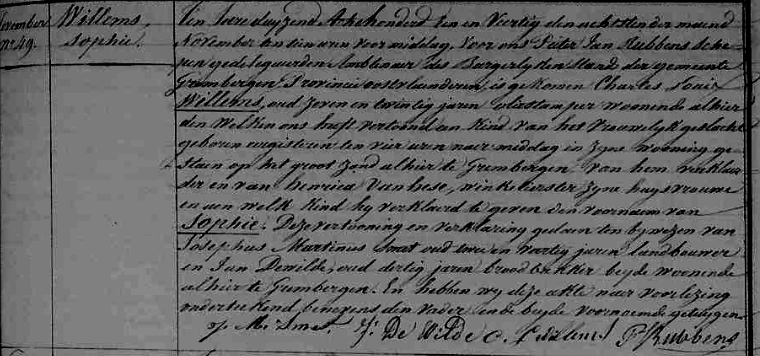 November
N° 49.
Willems,
Sophie.
Ten Jaere duyzend Achthonderd een en Veertig den achtsten der maend
November ten tien uren voor middag, voor ons Pieter Jan Rubbens Sche-
pen gedelegueerden Ambtenaer des Borgerlyken Stand der gemeente
Grembergen Provincie oostvlaenderen, is gekomen Charles Louis
Willems, oud zeven en twintig jaren woonende alhier
den welken ons heeft vertoond een Kind van het Vrouwelyk geslacht
geboren eergisteren ten vier uren naer middag in zyne wooning ge-
staen op het groot Zand alhier te Grembergen van hem verklaer-
der en van Henrica Van hese, winkelierster zyne huysvrouwe
en aen welk Kind hy verklaerd te geven den voornaem van
Sophie. Deze vertooning en verklaring gedaen ten bywezen van
Josephus Martinus Smet oud twee en veertig jaren landbouwer
en Jan Dewilde, oud dertig jaren broodbakker beyde woonende
alhier te Grembergen. En hebben wy deze akte naer voorlezing
onderteekend benevens den vader en de beyde voornoemde getuygen
J. M. Smet. J: De Wilde C. L. Willems P. J. Rubbens